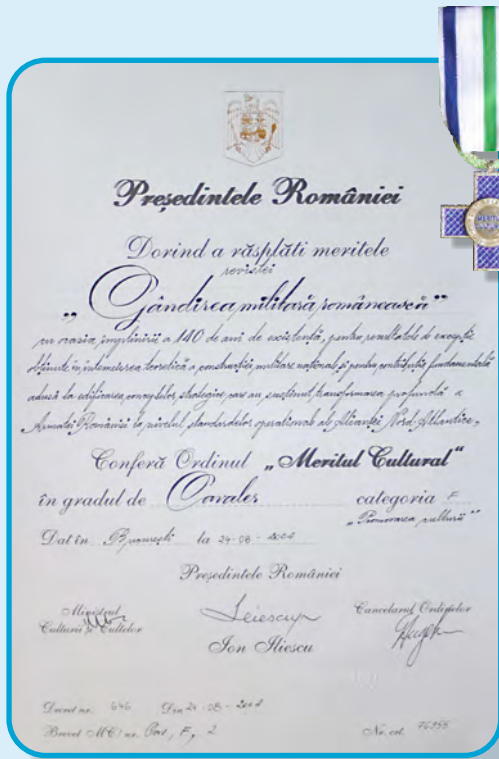 Președintele României
Dorind a răsplăti meritele
revistei
„Gândirea militară românească”
cu ocazia împlinirii a 140 de ani de existență, pentru rezultatele de excepție
obținute în întemeierea teoretică a construcției militare naționale și pentru contribuția fundamentală
adusă la edificarea conceptelor strategice care au susținut transformarea profundă a
Armatei României la nivelul standardelor operaționale ale Alianței Nord-Atlantice,
Conferă Ordinul „Meritul Cultural”
în gradul de Cavaler categoria F
„Promovarea culturii”
Dat în București la 24-08-2004
Președintele României
Ministrul Culturii și Cultelor
Ion Iliescu
Cancelarul Ordinelor
Decret nr. 646 Din 24-08-2004
Brevet MC/nr. Cav, F, 2
Nr. crt. 76955
MERITUL